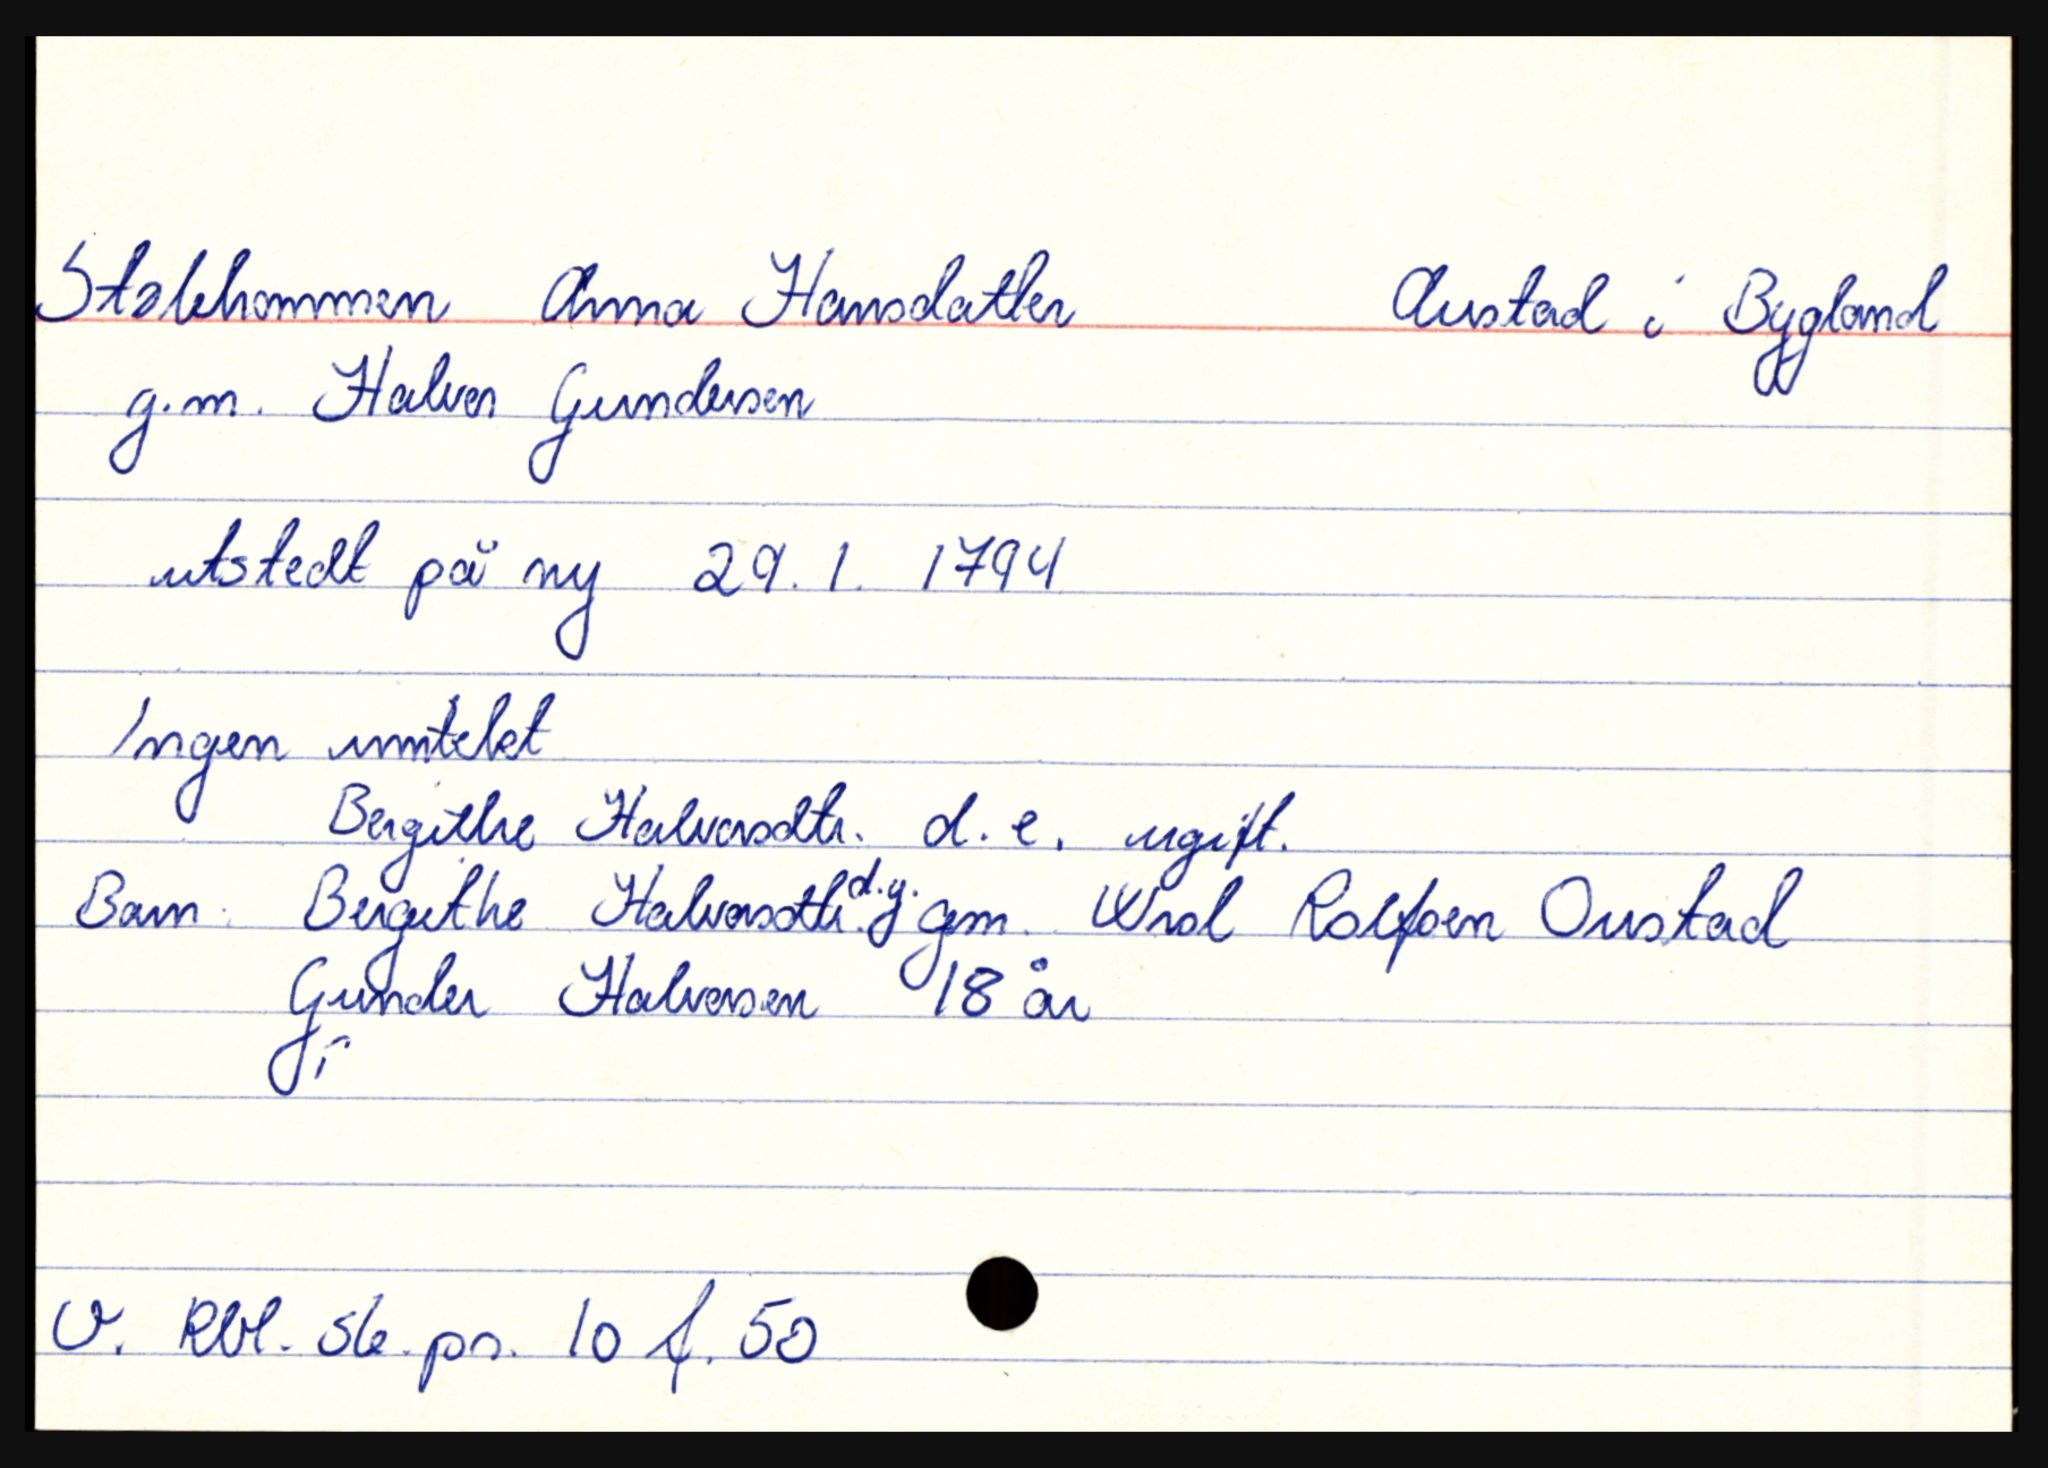 Stølehommen Anna Hansdatter Austad i Bygland
g.m. Halvor Gundersen
utstedt på ny 29. 1. 1794
Ingen inntekt
Bergithe Halvorsdtr. d. e. ugift.
Barn: Bergithe Halvorsdtr. d.y. gm. Wrol Rolfsen Oustad
Gunder Halvorsen 18 år
V. Rbl. Sk. pr. 10 f. 50